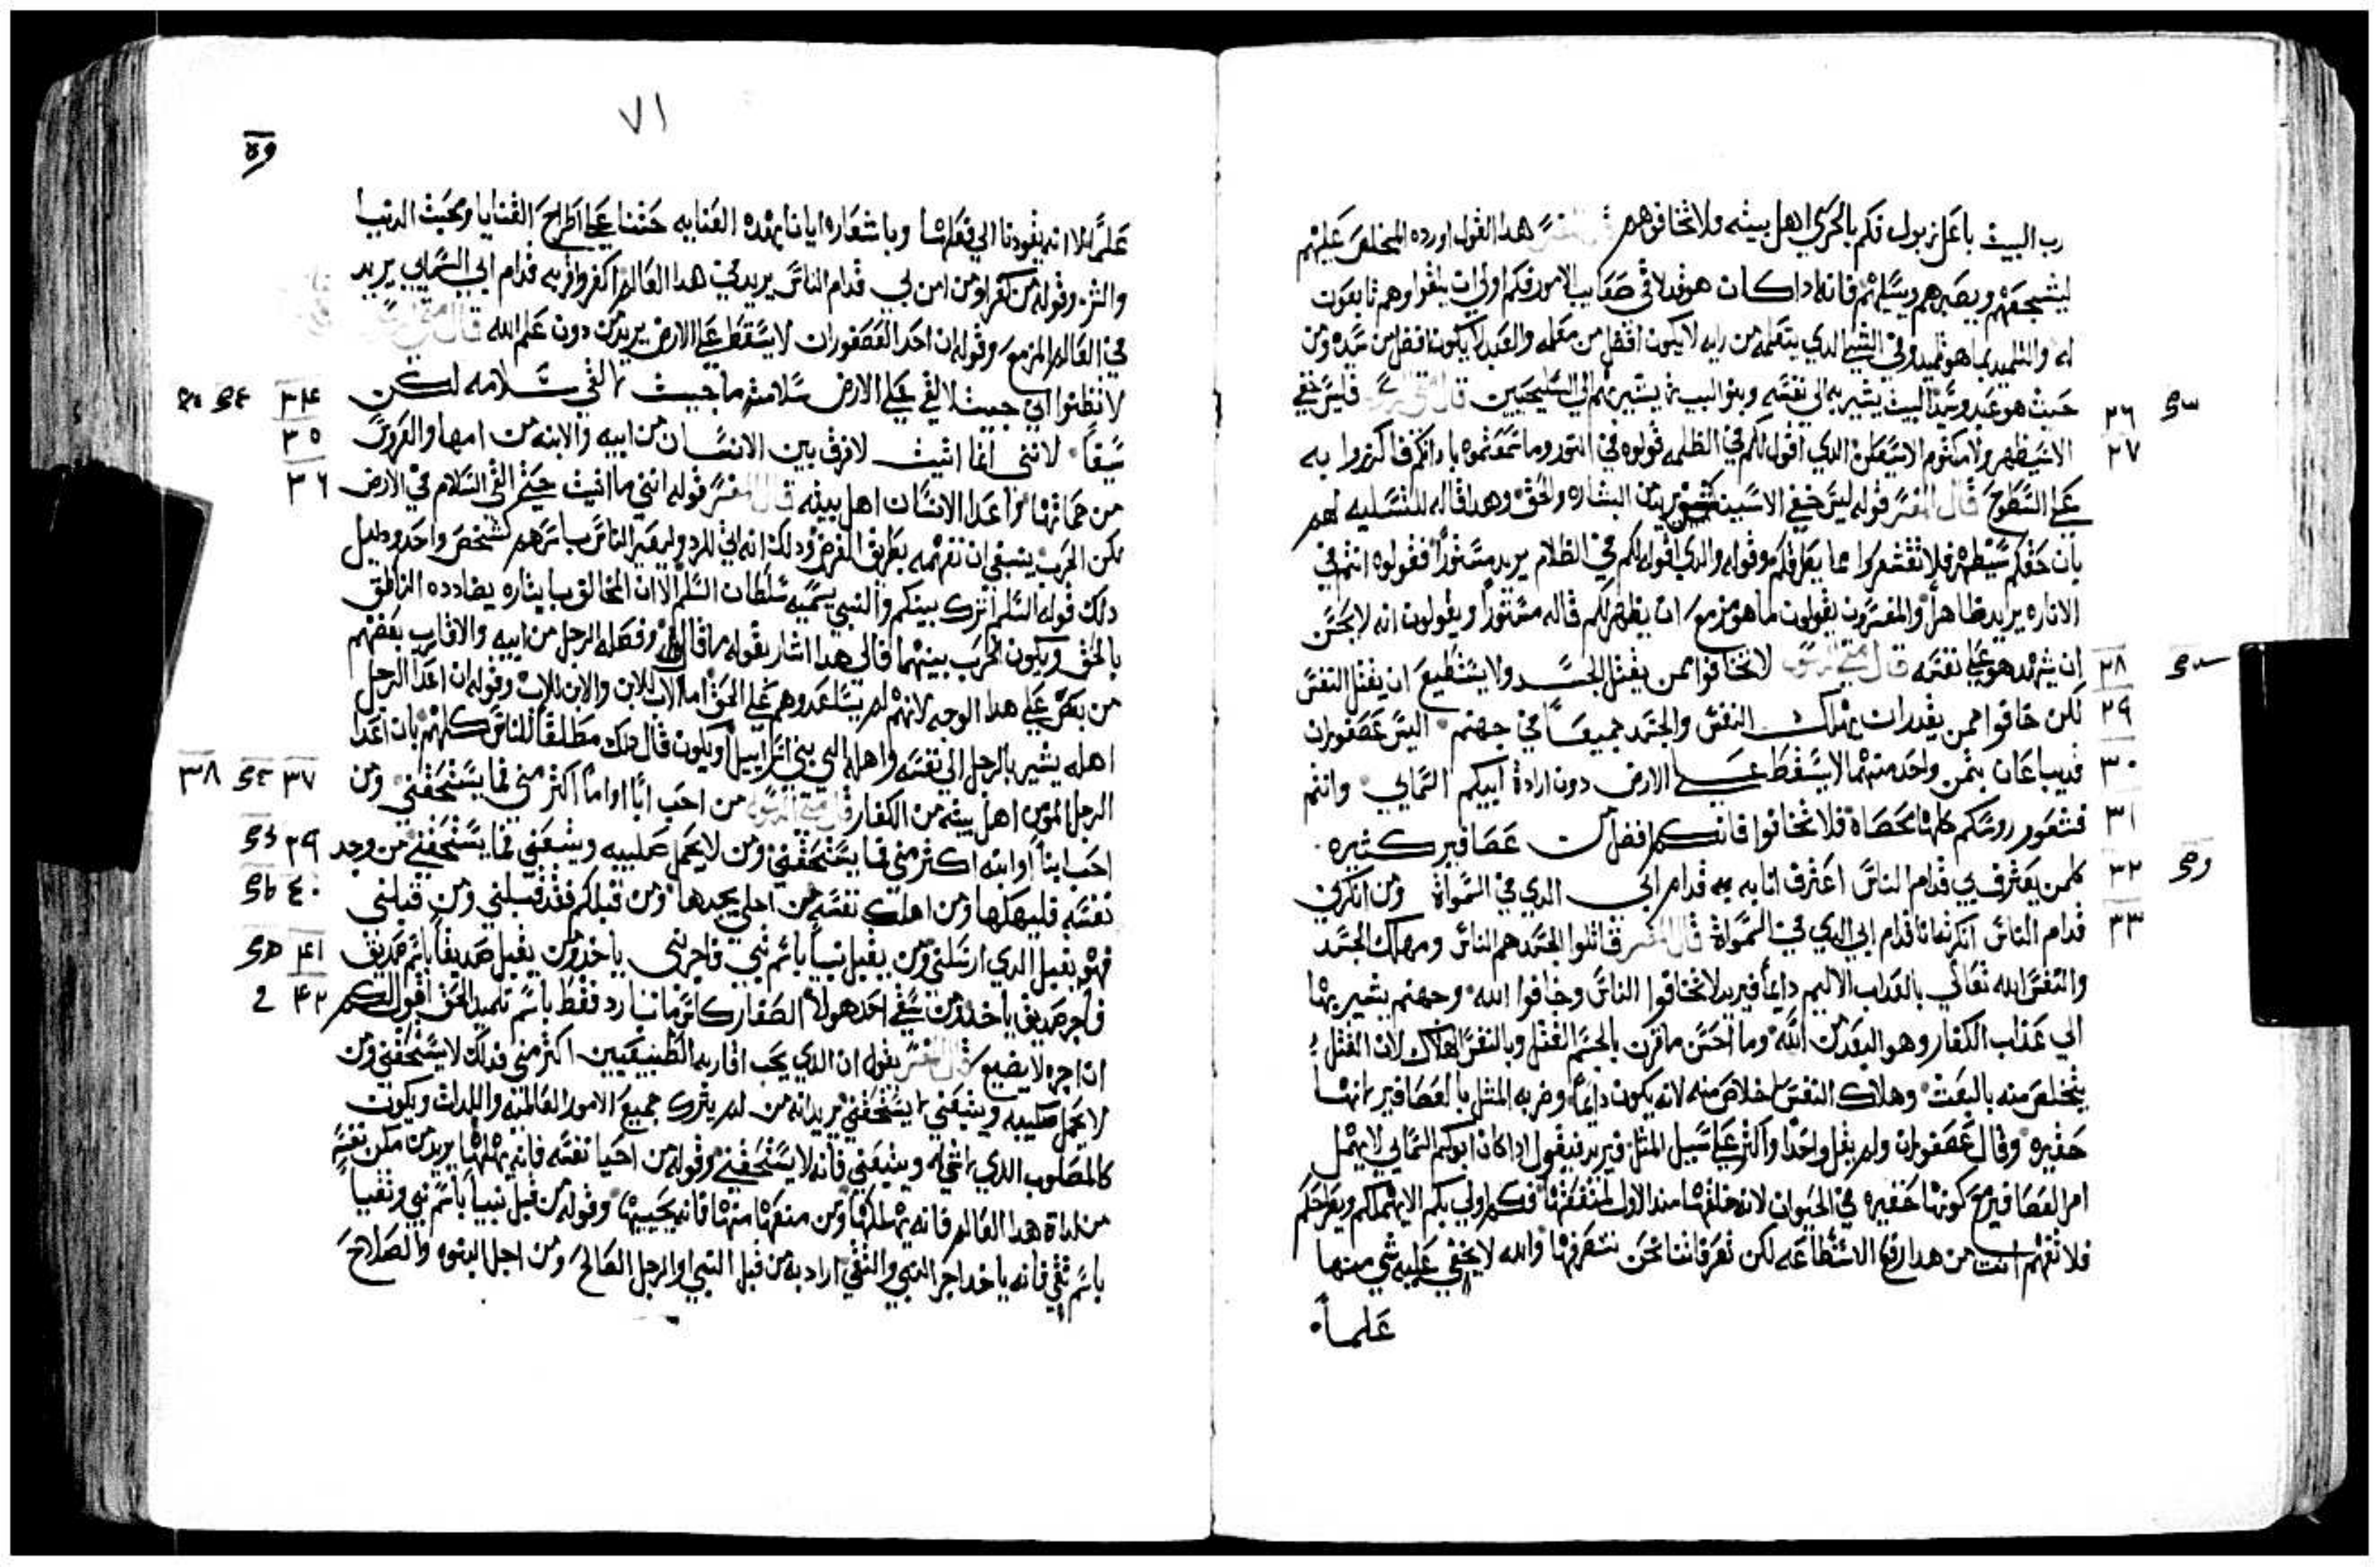 رب البيت باعلزبول فكم بالحري اهل بيته فلا تخافوهم هدا القول اورده المخلص عليهم
ليشجعهم ويصبرهم ويسليهم فانه اداكان هو قد لاقي صعايب الامور فكم اولي ان يلقوا وهم تابعون
له والتلميد بما هو تلميد وفي الشي الدي يتعلمه من رايه لا يكون افضل من معلمه والعبد لا يكون افضل من سيده ومن
حيث هو عبد وسيد البيت يشير به الي نفسه وبنو البيت يشير بهم الي السليحيين قال فليس خفي
٢٦
الا سيظهر ولا مكتوم الا سيعلن الدي اقول لكم في الظلمه قولوه في النور وما سمعتموه باداتكم فاكرزوا به
٢٧
علي السطوح قال المفسر قوله ليس خفي الا سيبين البشاره والحق وهدا قاله للتسليه لهم
بان حقكم سيظهر فلا تقشعروا مما يعرقكم وقوله والدي اقوله لكم في الظلام يريد مستورا فقولوه انتم في
الاناره يريد ظاهرا والمفسرون يقولون ما هو مزمع ان يظهر لكم قاله مستورا ويقولون انه لا يحسن
ان يشهد هو علي نفسه قال متي الرسول لا تخافوا ممن يقتل الجسد ولا يستطيع ان يقتل النفس
٢٨
لكن خافوا ممن يقدر ان يهلك النفس والجسد جميعا في جهنم اليس عصفوران
٢٩
قد يباعان بثمن واحد منهما لا يسقط علي الارض دون ارادة ابيكم السمايي وانتم
٣٠
فشعور روسكم كلها محصاة فلا تخافوا فانكم افضل من عصافير كثيره
٣١
كلمن يعترف بي قدام الناس اعترف انا به قدام ابي الدي في السمواة ومن انكرني
٣٢
قدام الناس انكرته انا قدام ابي الدي في السمواة قال المفسر قاتلوا الجسد هم الناس ومهلك الجسد
٣٣
والنفس الله تعالي بالعداب الاليم دايما فيريد لا تخافوا الناس وخافوا الله وجهنم يشير بها
الي عداب الكفار وهو البعد من الله وما احسن ما قرن بالجسم القتل وبالنفس الهلاك لان القتل
يتخلص منه بالبعث وهلاك النفس لا خلاص منه لانه يكون دايما وضربه المثل بالعصافير لانها
حقيره وقال عصفوران ولم يقل واحدا واكثر علي سبيل المثل فيريد فيقول اداكان ابوكم السمايي لا يهمل
امر العصافير مع كونها حقيره في الحيوان لانه خلقها مند الاول لمنفعتها فكم اولي بكم الا يهملكم ويطرحكم
فلا تفهم انت من هدا رفع الاستطاعه لكن تعرفاننا نحن نتصرفها والله لا يخفي عليه شي منها
علما
٧١
علما الا انه يقودنا الي فعل شا وباشعاره ايانا بهده العنايه حثنا علي اطراح القنايا ومحبة الدنيا
والثره وقوله من كفر او من امن بي قدام الناس يريد في هدا العالم اكفر واقر به قدام ابي السمايي يريد
في العالم المزمع وقوله ان احد العصفوران لا يسقط علي الارض يريد من دون علم الله قال متي
لا تظنوا اني جيت لالقي علي الارض سلامة ما جيت لالقي سلامه لكن
٣٤
سيفا لانني انما اتيت لافرق بين الانسان من ابيه والابنه من امها والعروس
٣٥
من حماتها واعدا الانسان اهل بيته قال المفسر قوله انني ما اتيت حيتم القي السلام في الارض
٣٦
لكن الحرب ينبغي ان نفهمه بطريق الغرض ودلك انه اتي للرد ولصير الناس باسرهم كشخص واحد ودليل
دلك قوله السلم اترك بينكم والنبي يسميه سلطان السلم الا ان المخالق بايثاره يضادده الناطق
بالحق ويكون الحرب بينهما فالي هدا اشار بقوله ما قال وفصله الرجل من ابيه والاقارب بعضهم
من بعض علي هدا الوجه لانهم لم يتساعدوهم علي الحق اما الاب للابن والابن للاب وقوله ان اعدا الرجل
اهله يشير بالرجل الي نفسه واهله الي بني اسراييل ويكون قال دلك مطلقا للناس كلهم بان اعدا
الرجل المومن اهل بيته من الكفار قال متي الرسول من احب ابا او اما اكثر مني فما يستحقني ومن
٣٧ ٣٨
احب ابنا او ابنه اكثر مني فما يستحقني ومن لا يحمل صليبه ويتبعني فما يستحقني من وجد
٣٩
نفسه فليهلكها ومن اهلك نفسه من اجلي يجدها ومن قبلكم فقد قبلني ومن قبلني
٤٠
فهو يقبل الدي ارسلني ومن يقبل نبيا باسم نبي فاجر نبي ياخد ومن يقبل صديقا باسم صديق
٤١
فاجر صديق ياخد ومن يسقي احد هولا الصغار كاس ما بارد فقط باسم تلميد الحق اقول لكم
٤٢
ان اجره لا يضيع قال المفسر يقول ان الدي يحب اقاربه الطبيعيين اكثر مني فدلك لا يستحقني ومن
لا يحمل صليبه ويتبعني لا يستحقني يريد انه من لم يترك جميع الامور العالميه واللدات ويكون
كالمصلوب الدي ويتبعني فانه لا يستحقني وقوله من احيا نفسه فانه يهلكها يريد من مكن نفسه
من لداة هدا العالم فانه يهلكها ومن منعها منها فانه يحييها وقوله من قبل نبيا باسم نبي وتقيا
باسم تقي فانه ياخد اجر النبي والتقي اراد به من قبل النبي او الرجل الصالح ومن اجل البنوه والصلاح